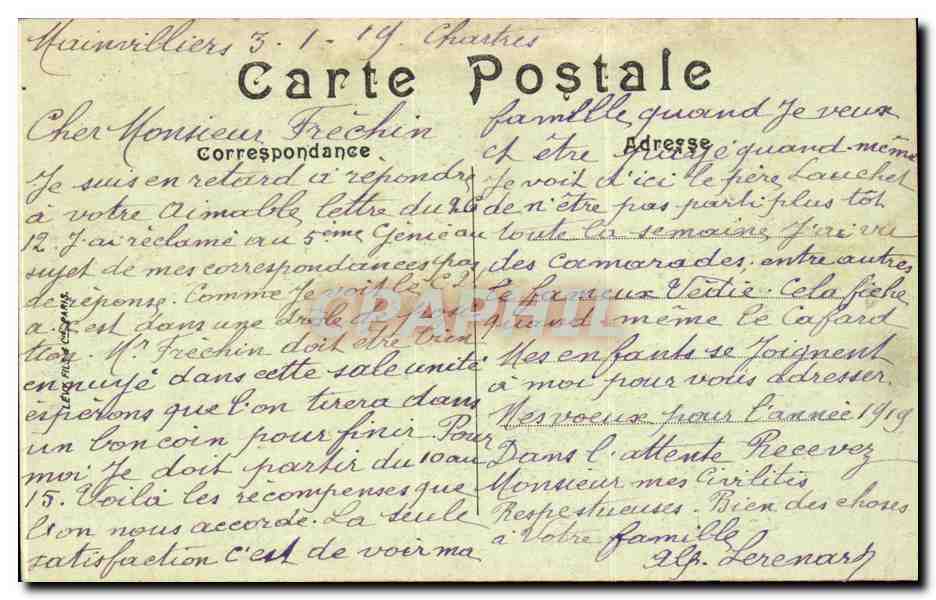 Mainvilliers 3.1.19. Chartres
Carte Postale
Cher Monsieur Fréchin
Correspondance
Je suis en retard à répondre
à votre Aimable lettre du 26
12. J'ai réclamé au 5ème Génie au
sujet de mes correspondances pas
de réponse. Comme Je voit le
a. c'est dans une drôle de posi
tion. Mr Fréchin doit être bien
ennuyé dans cette sale unité
espérons que l'on tirera dans
un bon coin pour finir. Pour
moi Je doit partir du 10 au
15. Voilà les récompenses que
l'on nous accorde. La seule
satisfaction c'est de voir ma
famille, quand Je veux
Adresse
et être quand même
Je voit d'ici le père Lauchet
de n'être pas parti plus tôt
toute la semaine J'ai vu
des camarades, entre autres
le fameux Védie. Cela fiche
quand même le Cafard
Mes enfants se Joignent
à moi pour vous adresser.
Mes voeux pour l'année 1919
Dans l'attente Recevez
Monsieur mes Civilités
Respectueuses. Bien des choses
à Votre famille
Alp. Lerenard
LEVY FILS & Cie PARIS
CPAPHIL